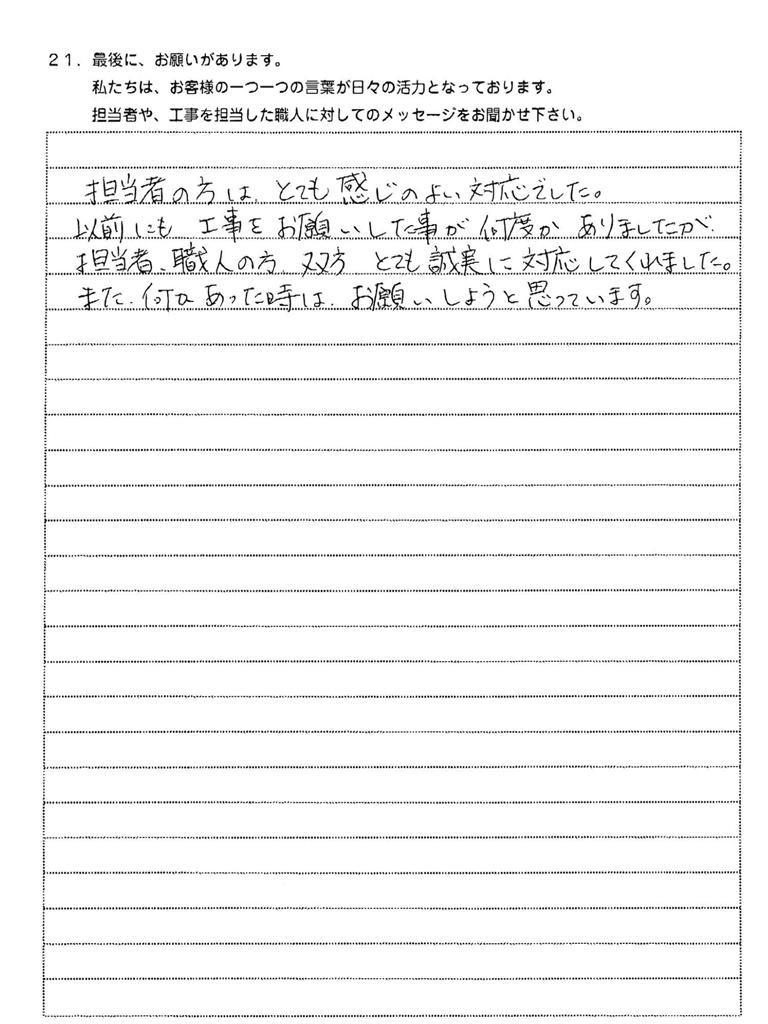 21. 最後に、お願いがあります。
私たちは、お客様の一つ一つの言葉が日々の活力となっております。
担当者や、工事を担当した職人に対してのメッセージをお聞かせ下さい。
担当者の方は、とても感じのよい対応でした。
以前にも 工事を お願いした事が 何度か ありましたが、
担当者、職人の方、双方 とても誠実に対応してくれました。
また、何か あった時は、お願いしようと思っています。